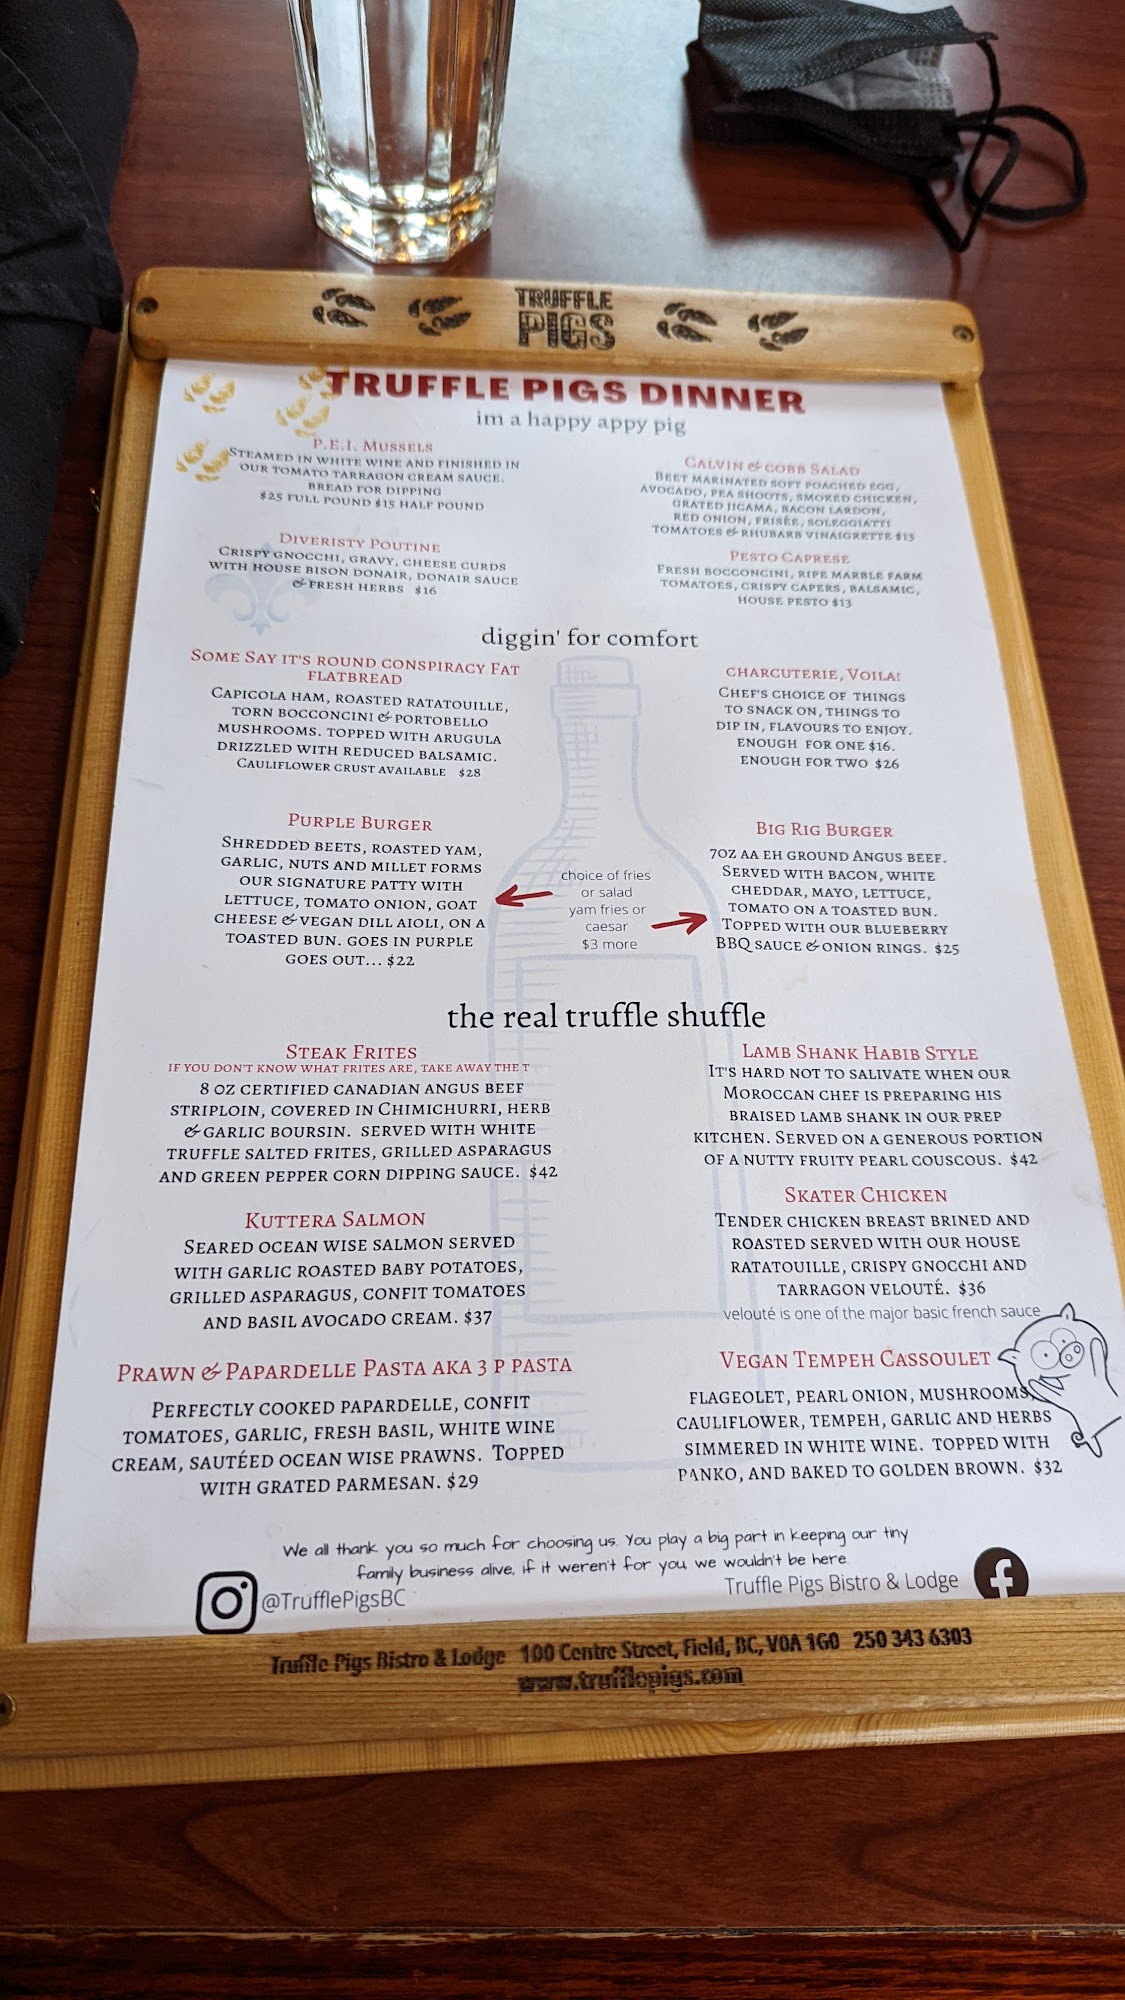 TRUFFLE
PIGS
TRUFFLE PIGS DINNER
im a happy appy pig
P.E.I. MUSSELS
STEAMED IN WHITE WINE AND FINISHED IN
OUR TOMATO TARRAGON CREAM SAUCE.
BREAD FOR DIPPING
$25 FULL POUND $15 HALF POUND
DIVERISTY POUTINE
CRISPY GNOCCHI, GRAVY, CHEESE CURDS
WITH HOUSE BISON DONAIR, DONAIR SAUCE
& FRESH HERBS $16
CALVIN & COBB SALAD
BEET MARINATED SOFT POACHED EGG,
AVOCADO, PEA SHOOTS, SMOKED CHICKEN,
GRATED JICAMA, BACON LARDON,
RED ONION, FRISÉE, SOLEGGIATTI
TOMATOES & RHUBARB VINAIGRETTE $13
PESTO CAPRESE
FRESH BOCCONCINI, RIPE MARBLE FARM
TOMATOES, CRISPY CAPERS, BALSAMIC,
HOUSE PESTO $13
diggin' for comfort
SOME SAY IT'S ROUND CONSPIRACY FAT
FLATBREAD
CAPICOLA HAM, ROASTED RATATOUILLE,
TORN BOCCONCINI & PORTOBELLO
MUSHROOMS. TOPPED WITH ARUGULA
DRIZZLED WITH REDUCED BALSAMIC.
CAULIFLOWER CRUST AVAILABLE $28
CHARCUTERIE, VOILA!
CHEF'S CHOICE OF THINGS
TO SNACK ON, THINGS TO
DIP IN, FLAVOURS TO ENJOY.
ENOUGH FOR ONE $16.
ENOUGH FOR TWO $26
PURPLE BURGER
SHREDDED BEETS, ROASTED YAM,
GARLIC, NUTS AND MILLET FORMS
OUR SIGNATURE PATTY WITH
LETTUCE, TOMATO ONION, GOAT
CHEESE & VEGAN DILL AIOLI, ON A
TOASTED BUN. GOES IN PURPLE
GOES OUT... $22
choice of fries
or salad
yam fries or
caesar
$3 more
BIG RIG BURGER
7OZ AA EH GROUND ANGUS BEEF.
SERVED WITH BACON, WHITE
CHEDDAR, MAYO, LETTUCE,
TOMATO ON A TOASTED BUN.
TOPPED WITH OUR BLUEBERRY
BBQ SAUCE & ONION RINGS. $25
the real truffle shuffle
STEAK FRITES
IF YOU DON'T KNOW WHAT FRITES ARE, TAKE AWAY THE T
8 OZ CERTIFIED CANADIAN ANGUS BEEF
STRIPLOIN, COVERED IN CHIMICHURRI, HERB
& GARLIC BOURSIN. SERVED WITH WHITE
TRUFFLE SALTED FRITES, GRILLED ASPARAGUS
AND GREEN PEPPER CORN DIPPING SAUCE. $42
LAMB SHANK HABIB STYLE
IT'S HARD NOT TO SALIVATE WHEN OUR
MOROCCAN CHEF IS PREPARING HIS
BRAISED LAMB SHANK IN OUR PREP
KITCHEN. SERVED ON A GENEROUS PORTION
OF A NUTTY FRUITY PEARL COUSCOUS. $42
KUTTERA SALMON
SEARED OCEAN WISE SALMON SERVED
WITH GARLIC ROASTED BABY POTATOES,
GRILLED ASPARAGUS, CONFIT TOMATOES
AND BASIL AVOCADO CREAM. $37
SKATER CHICKEN
TENDER CHICKEN BREAST BRINED AND
ROASTED SERVED WITH OUR HOUSE
RATATOUILLE, CRISPY GNOCCHI AND
TARRAGON VELOUTÉ. $36
velouté is one of the major basic french sauce
PRAWN & PAPARDELLE PASTA AKA 3 P PASTA
PERFECTLY COOKED PAPARDELLE, CONFIT
TOMATOES, GARLIC, FRESH BASIL, WHITE WINE
CREAM, SAUTÉED OCEAN WISE PRAWNS. TOPPED
WITH GRATED PARMESAN. $29
VEGAN TEMPEH CASSOULET
FLAGEOLET, PEARL ONION, MUSHROOMS,
CAULIFLOWER, TEMPEH, GARLIC AND HERBS
SIMMERED IN WHITE WINE. TOPPED WITH
PANKO, AND BAKED TO GOLDEN BROWN. $32
We all thank you so much for choosing us. You play a big part in keeping our tiny
family business alive, if it weren't for you we wouldn't be here.
@TrufflePigsBC
Truffle Pigs Bistro & Lodge
Truffle Pigs Bistro & Lodge 100 Centre Street, Field, BC, V0A 1G0 250 343 6303
www.trufflepigs.com